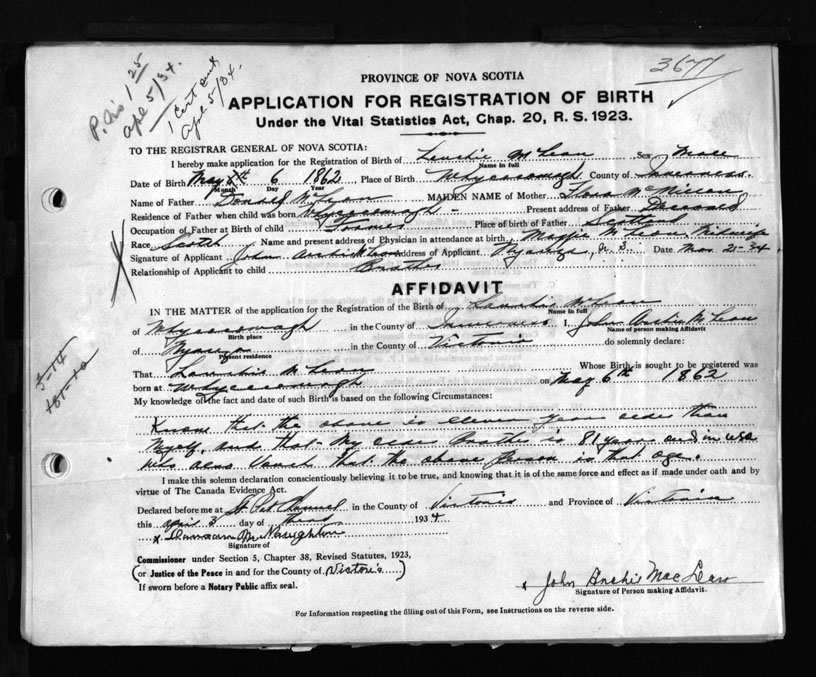 3677
Apl 5/34.
1 Cert
Apl 5/34.
PROVINCE OF NOVA SCOTIA
APPLICATION FOR REGISTRATION OF BIRTH
Under the Vital Statistics Act, Chap. 20, R. S. 1923.
TO THE REGISTRAR GENERAL OF NOVA SCOTIA:
I hereby make application for the Registration of Birth of Lauchie McLean Sex Male
Name in full
Date of Birth May 6 1862 Place of Birth Whycocomagh County of Inverness.
Month Day Year
Name of Father Donald McLean MAIDEN NAME of Mother Flora McMillan
Residence of Father when child was born Whycocomagh - Present address of Father Deceased
Occupation of Father at Birth of child Farmer Place of birth of Father Scotland
Race Scotch Name and present address of Physician in attendance at birth Maggie McLean, Midwife
Signature of Applicant John Archie McLean Address of Applicant N. S. Date Mar 21-34
Relationship of Applicant to child Brother
AFFIDAVIT
IN THE MATTER of the application for the Registration of the Birth of Lauchie McLean
Name in full
of Whycocomagh in the County of Inverness I, John Archie McLean
Birth place Name of person making Affidavit
of in the County of Victoria do solemnly declare:
Present residence
That Lauchie McLean Whose Birth is sought to be registered was
born at Whycocomagh on May 6th 1862
My knowledge of the fact and date of such Birth is based on the following Circumstances:
Know that the above is eleven years older than
Myself, and that my older Brother is 81 years and in USA
who also that the above Person is that age.
I make this solemn declaration conscientiously believing it to be true, and knowing that it is of the same force and effect as if made under oath and by
virtue of The Canada Evidence Act.
Declared before me at in the County of Victoria and Province of Victoria
this April 3 day of 1934
x Duncan McNaughton
Signature of
Commissioner under Section 5, Chapter 38, Revised Statutes, 1923,
(or Justice of the Peace in and for the County of Victoria)
If sworn before a Notary Public affix seal.
x John Archie MacLean
Signature of Person making Affidavit.
For Information respecting the filling out of this Form, see Instructions on the reverse side.